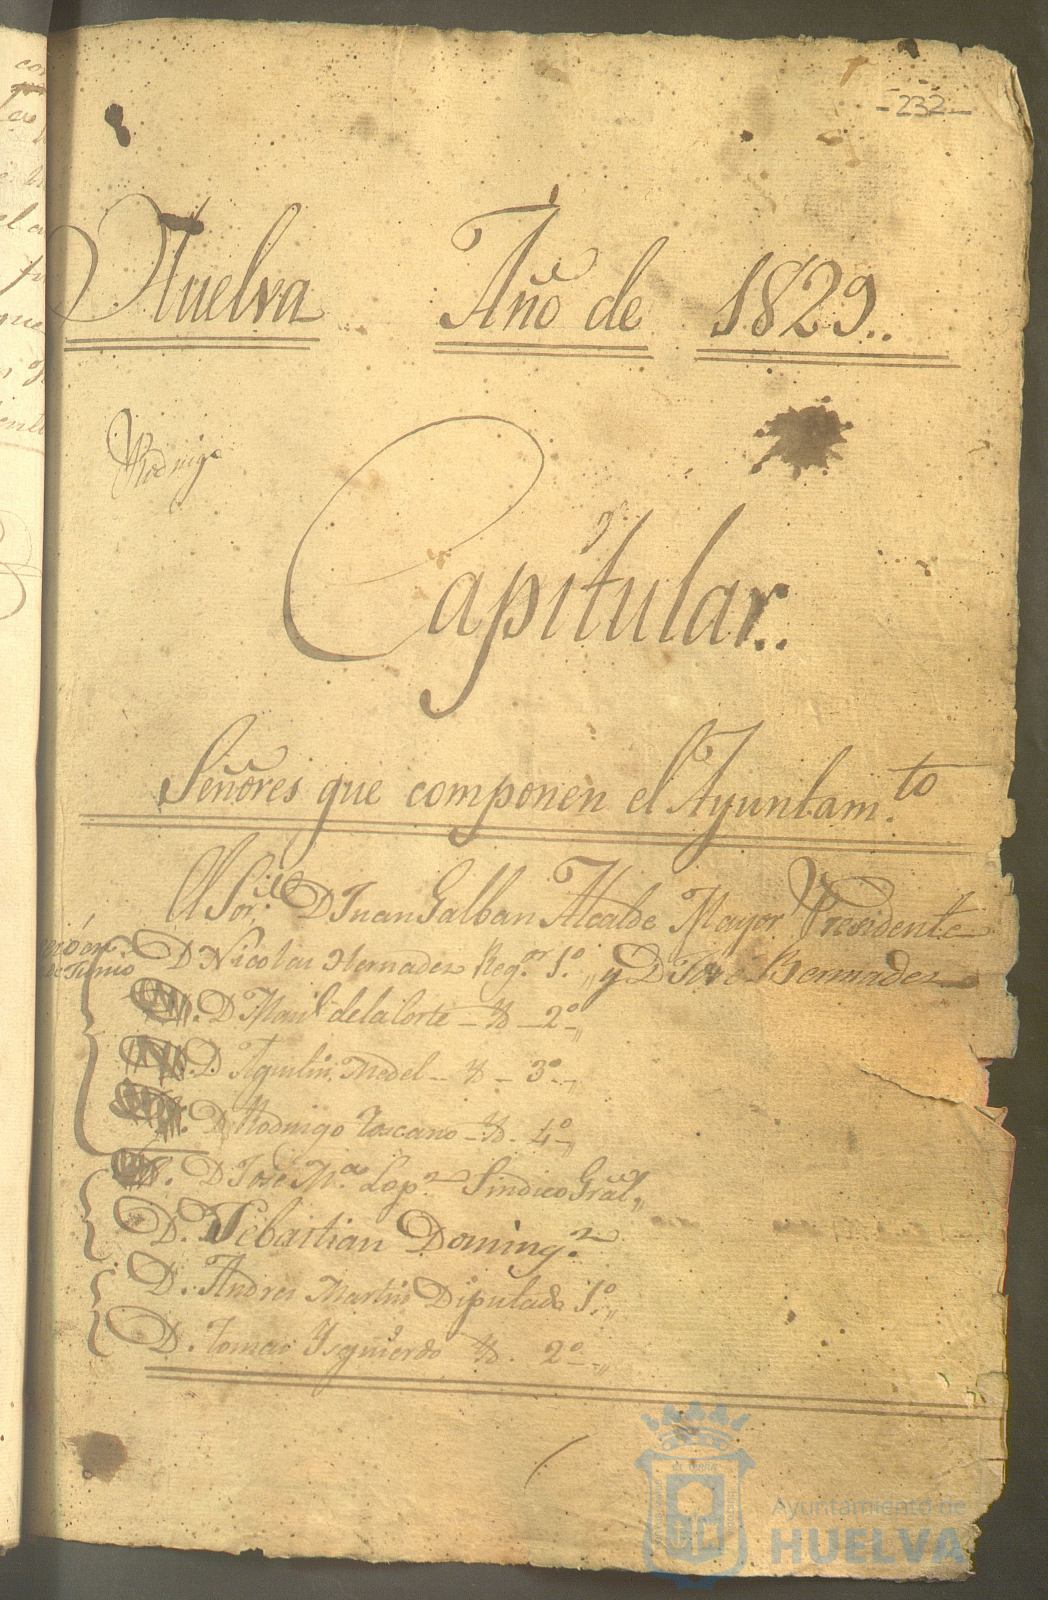 -232-
Huelva Año de 1829..
Rodrigo
Capitular..
Señores que componen el Ayuntam.to
El Sor. D Juan Galban Alcalde Mayor Presidente
D Nicolas Hernadez Reg.or 1.º y D Jose Bermudez
de Junio
D. Man.l de la Corte - Yd - 2º
D. Aguslin Medel - Yd - 3º
D. Rodrigo Toscano - Yd. 4º
D Jose M.a Lop.z Sindico Gral
D. Sebastian Doming.z
D. Andres Martin Diputado 1.º
D. Tomas Ysquierdo Yd. 2º
Ayuntamiento de
HUELVA